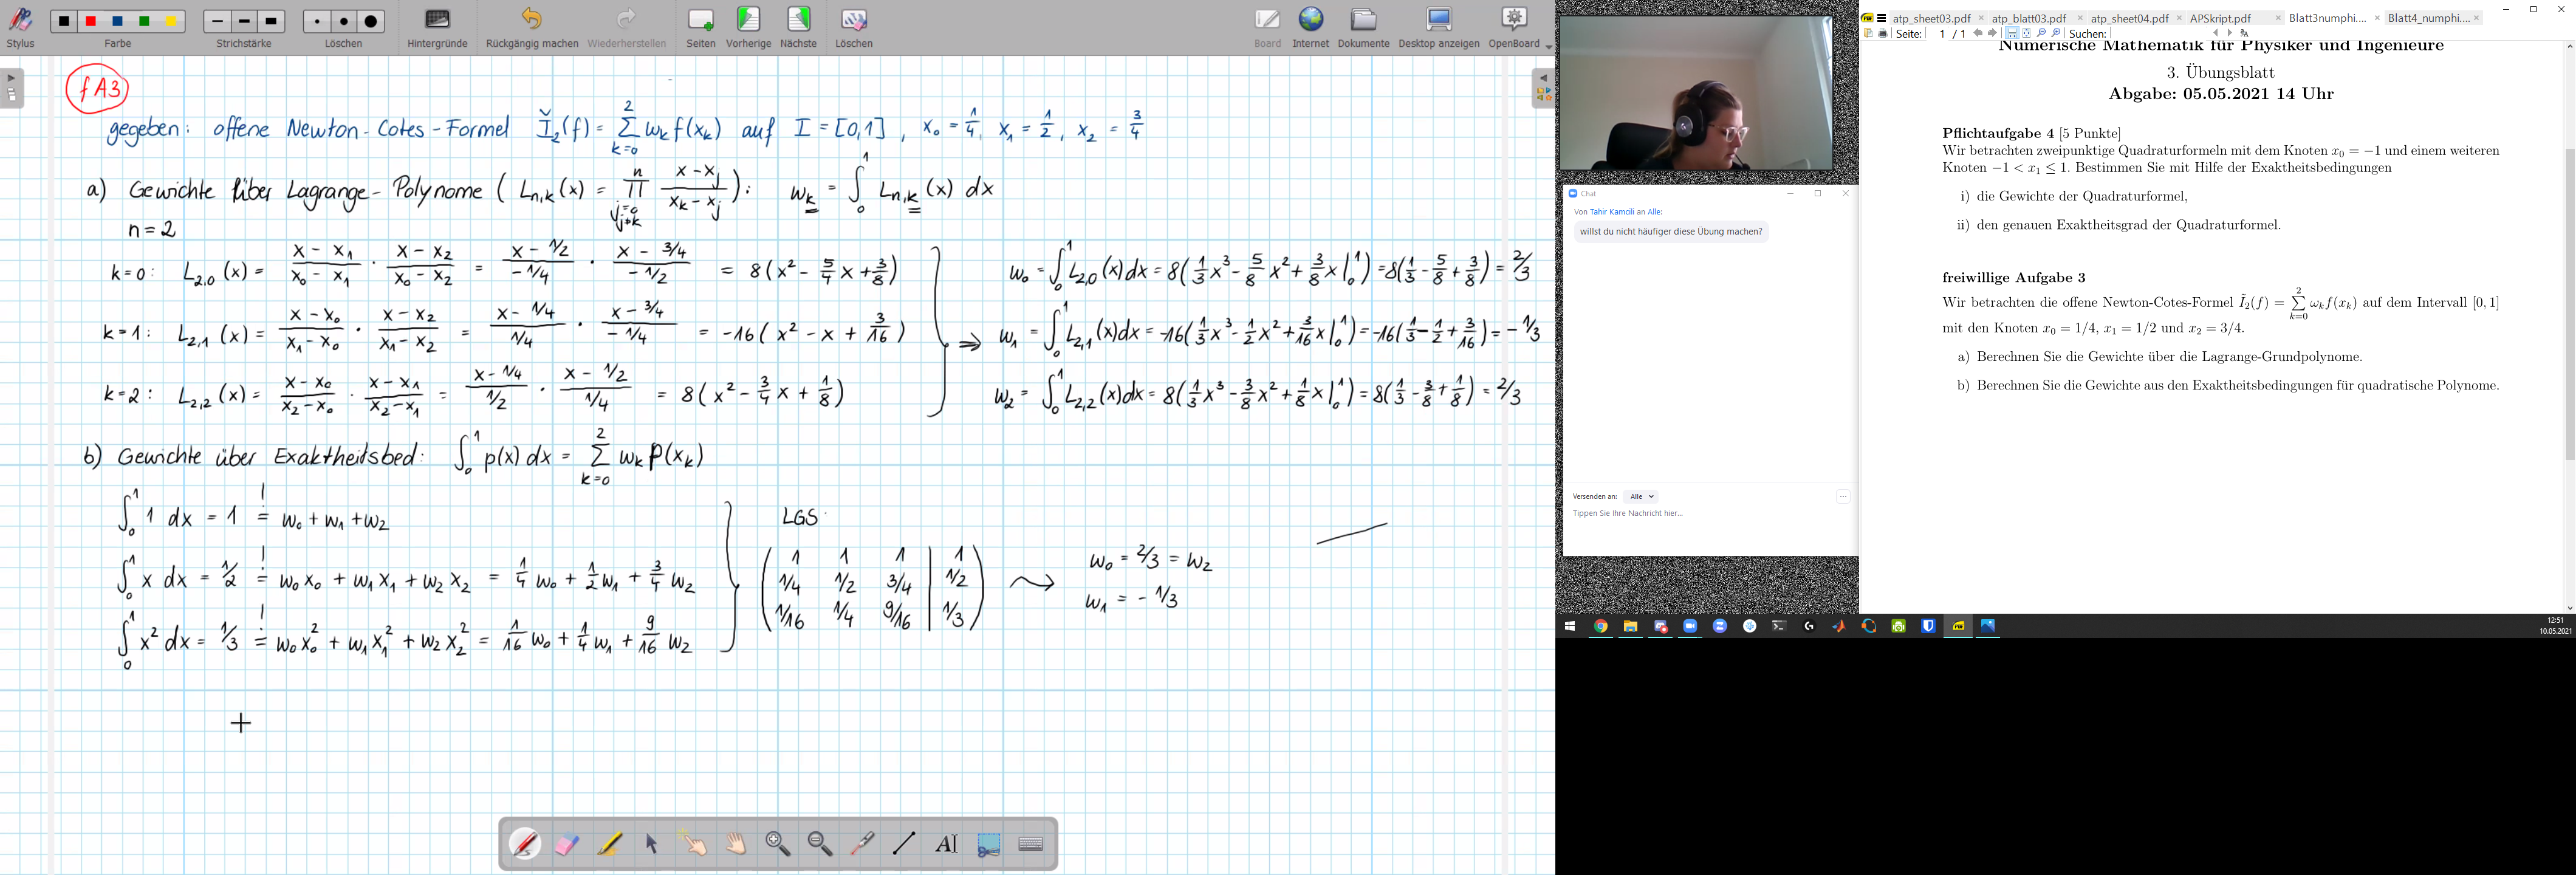 Stylus
Farbe
Strichstärke
Löschen
Hintergründe
Rückgängig machen
Wiederherstellen
Seiten
Vorherige
Nächste
Löschen
Board
Internet
Dokumente
Desktop anzeigen
OpenBoard
fA3
gegeben: offene Newton-Cotes-Formel Ǐ₂(f) = ∑_{k=0}^{2} w_k f(x_k) auf I = [0,1], x₀ = 1/4, x₁ = 1/2, x₂ = 3/4
a) Gewichte über Lagrange-Polynome ( L_{n,k}(x) = ∏_{j=0, j≠k}^{n} (x - x_j)/(x_k - x_j) ): w_k = ∫₀¹ L_{n,k}(x) dx
n = 2
k=0: L_{2,0}(x) = (x - x₁)/(x₀ - x₁) · (x - x₂)/(x₀ - x₂) = (x - 1/2)/(-1/4) · (x - 3/4)/(-1/2) = 8(x² - 5/4 x + 3/8)
w₀ = ∫₀¹ L_{2,0}(x) dx = 8(1/3 x³ - 5/8 x² + 3/8 x |₀¹) = 8(1/3 - 5/8 + 3/8) = 2/3
k=1: L_{2,1}(x) = (x - x₀)/(x₁ - x₀) · (x - x₂)/(x₁ - x₂) = (x - 1/4)/(1/4) · (x - 3/4)/(-1/4) = -16(x² - x + 3/16)
⇒ w₁ = ∫₀¹ L_{2,1}(x) dx = -16(1/3 x³ - 1/2 x² + 3/16 x |₀¹) = -16(1/3 - 1/2 + 3/16) = -1/3
k=2: L_{2,2}(x) = (x - x₀)/(x₂ - x₀) · (x - x₁)/(x₂ - x₁) = (x - 1/4)/(1/2) · (x - 1/2)/(1/4) = 8(x² - 3/4 x + 1/8)
w₂ = ∫₀¹ L_{2,2}(x) dx = 8(1/3 x³ - 3/8 x² + 1/8 x |₀¹) = 8(1/3 - 3/8 + 1/8) = 2/3
b) Gewichte über Exaktheitsbed: ∫₀¹ p(x) dx = ∑_{k=0}^{2} w_k p(x_k)
∫₀¹ 1 dx = 1 =! w₀ + w₁ + w₂
∫₀¹ x dx = 1/2 =! w₀x₀ + w₁x₁ + w₂x₂ = 1/4 w₀ + 1/2 w₁ + 3/4 w₂
∫₀¹ x² dx = 1/3 =! w₀x₀² + w₁x₁² + w₂x₂² = 1/16 w₀ + 1/4 w₁ + 9/16 w₂
LGS:
1 1 1 | 1
1/4 1/2 3/4 | 1/2
1/16 1/4 9/16 | 1/3
w₀ = 2/3 = w₂
w₁ = -1/3
Chat
Von Tahir Kamcili an Alle:
willst du nicht häufiger diese Übung machen?
Versenden an: Alle
Tippen Sie Ihre Nachricht hier...
atp_sheet03.pdf
atp_blatt03.pdf
atp_sheet04.pdf
APSkript.pdf
Blatt3numphi....
Blatt4_numphi....
Seite: 1 / 1
Suchen:
Numerische Mathematik für Physiker und Ingenieure
3. Übungsblatt
Abgabe: 05.05.2021 14 Uhr
Pflichtaufgabe 4 [5 Punkte]
Wir betrachten zweipunktige Quadraturformeln mit dem Knoten x₀ = −1 und einem weiteren
Knoten −1 < x₁ ≤ 1. Bestimmen Sie mit Hilfe der Exaktheitsbedingungen
i) die Gewichte der Quadraturformel,
ii) den genauen Exaktheitsgrad der Quadraturformel.
freiwillige Aufgabe 3
Wir betrachten die offene Newton-Cotes-Formel Ĩ₂(f) = ∑_{k=0}^{2} ω_k f(x_k) auf dem Intervall [0, 1]
mit den Knoten x₀ = 1/4, x₁ = 1/2 und x₂ = 3/4.
a) Berechnen Sie die Gewichte über die Lagrange-Grundpolynome.
b) Berechnen Sie die Gewichte aus den Exaktheitsbedingungen für quadratische Polynome.
12:51
10.05.2021